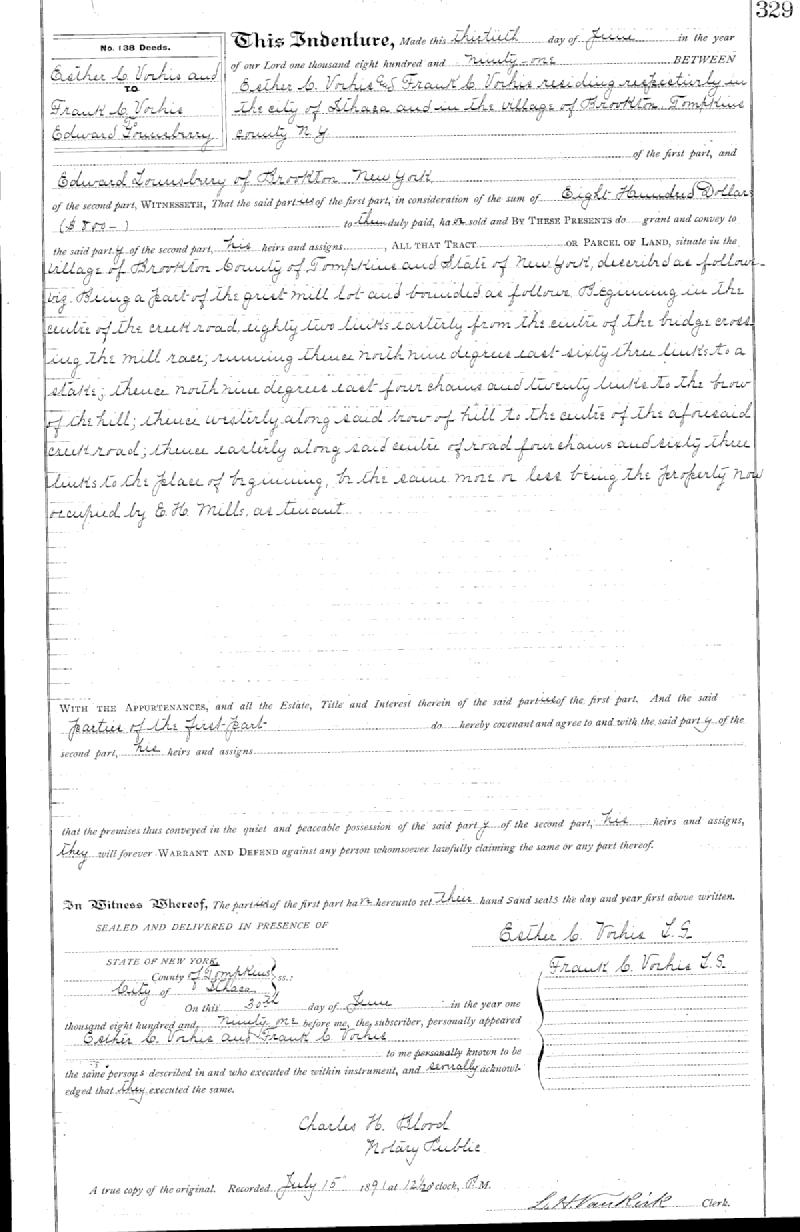 329
No. 138 Deeds.
Esther C. Vorhis and
Frank C. Vorhis
TO
Edward Lounsberry
This Indenture, Made this thirtieth day of June in the year
of our Lord one thousand eight hundred and ninety-one BETWEEN
Esther C. Vorhis & Frank C. Vorhis residing respectively in
the city of Ithaca and in the village of Brookton, Tompkins
county N.Y.
of the first part, and
Edward Lounsberry of Brookton New York
of the second part, WITNESSETH, That the said parties of the first part, in consideration of the sum of Eight Hundred Dollars
($800-) to them duly paid, have sold and BY THESE PRESENTS do grant and convey to
the said party of the second part, his heirs and assigns, ALL THAT TRACT OR PARCEL OF LAND, situate in the
village of Brookton County of Tompkins and State of New York, described as follows
viz. Being a part of the grist mill lot and bounded as follows. Beginning in the
centre of the creek road, eighty two links easterly from the centre of the bridge cross
ing the mill race; running thence north nine degrees east sixty three links to a
stake; thence north nine degrees east four chains and twenty links to the brow
of the hill; thence westerly along said brow of hill to the centre of the aforesaid
creek road; thence easterly along said centre of road four chains and sixty three
links to the place of beginning, be the same more or less being the property now
occupied by E. H. Mills, as tenant
WITH THE APPURTENANCES, and all the Estate, Title and Interest therein of the said parties of the first part. And the said
parties of the first part do hereby covenant and agree to and with the said party of the
second part, his heirs and assigns
that the premises thus conveyed in the quiet and peaceable possession of the said party of the second part, his heirs and assigns,
they will forever WARRANT AND DEFEND against any person whomsoever lawfully claiming the same or any part thereof.
In Witness Whereof, The parties of the first part have hereunto set their hands and seals the day and year first above written.
SEALED AND DELIVERED IN PRESENCE OF
Esther C. Vorhis L.S.
Frank C. Vorhis L.S.
STATE OF NEW YORK,
County of Tompkins ss.:
City of Ithaca
On this 30th day of June in the year one
thousand eight hundred and ninety one before me, the subscriber, personally appeared
Esther C. Vorhis and Frank C. Vorhis
to me personally known to be
the same persons described in and who executed the within instrument, and severally acknowl-
edged that they executed the same.
Charles H. Blood
Notary Public
A true copy of the original. Recorded July 15 1891 at o'clock, P.M.
L. H. Van Kirk Clerk.